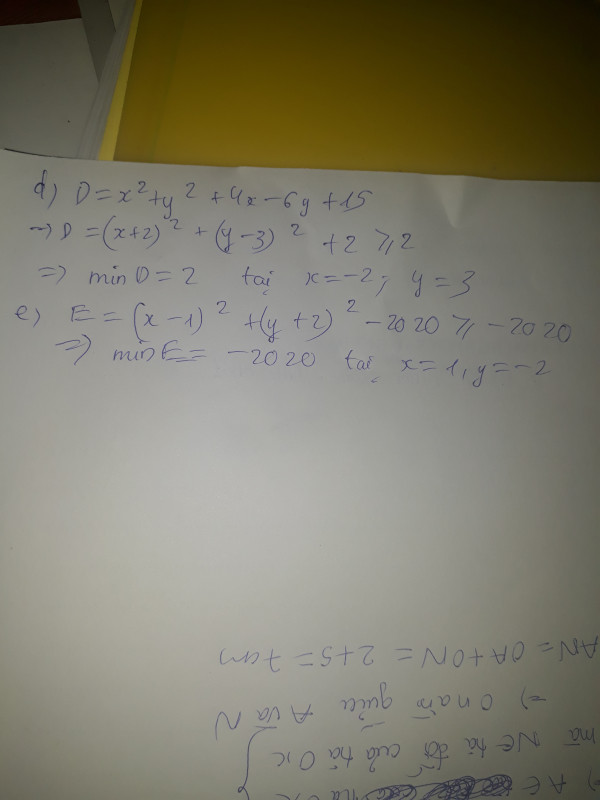 d) D = x² + y² + 4x - 6y + 15
→ D = (x+2)² + (y-3)² + 2 ⩾ 2
=> min D = 2 tại x = -2; y = 3
e) E = (x-1)² + (y+2)² - 2020 ⩾ -2020
=> min E = -2020 tại x = 1, y = -2
AN = OA + ON = 2+5 = 7cm
=> O nằm giữa A và N
mà NE tia đối của tia Ox
=) AE